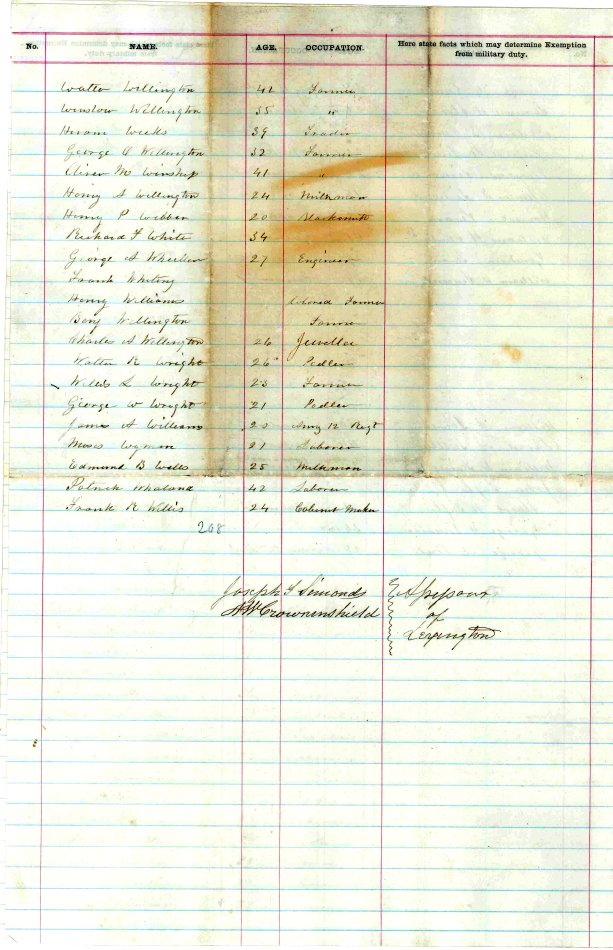 No. NAME. AGE. OCCUPATION. Here state facts which may determine Exemption from military duty.
Walter Wellington 42 Farmer
Winslow Wellington 35 "
Hiram Weeks 39 Trader
George O Wellington 32 Farmer
Oliver M Winship 41 "
Henry S Wellington 24 Milkman
Henry P Webber 20 Blacksmith
Richard F White 34
George A Wheeler 27 Engineer
Frank Whiting
Henry Williams Colored Farmer
Benj Wellington Farmer
Charles A Wellington 26 Jeweller
Walter R Wright 26 Pedler
Willis L Wright 23 Farmer
George W Wright 21 Pedler
James A Williams Army 12 Regt
Moses Wyman 21 Laborer
Edmund B Wells 25 Milkman
Patrick Whaland 42 Laborer
Frank R Willis 24 Cabinet Maker
208
Joseph F Simonds
A W Crowninshield
Assessors
of
Lexington